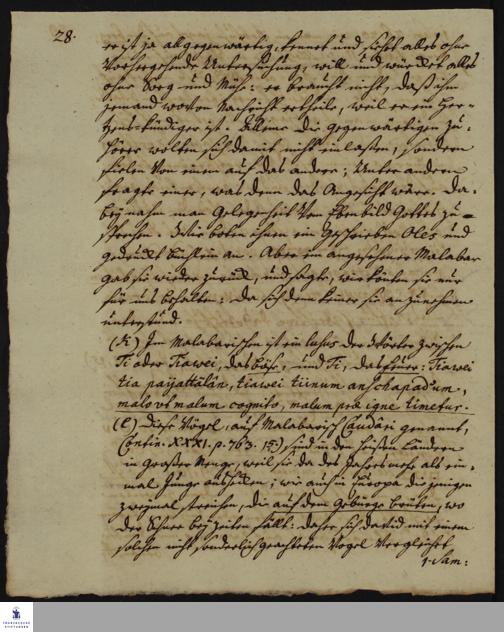 28.
er ist ja allgegenwärtig, kennet und siehet alles ohne
vorhergehende Untersuchung, will und würcket alles
ohne Sorg und Mühe: er braucht nicht, daß ihm
jemand wovon Nachricht ertheile, weil er ein Her-
tzens-kündiger ist. Alleine die gegenwärtigen Zu-
hörer wolten sich damit nicht einlassen, sondern
fielen von einem auf das andere; Unter andern
fragte einer, was denn das Angesicht wäre. Da-
bey nahm man Gelegenheit vom Ebenbild Gottes zu
sprechen. Wir boten ihnen ein geschrieben Oles und
gedruckt Büchlein an. Aber ein angesehener Malabar
gab sie wieder zurück, und sagte, wir könten sie nur
für uns behalten: Da sich denn keiner sie anzunehmen
unterstund.
Im Malabarischen ist ein lusus der Wörter zwischen
Ti oder Tiawei, das böse, und Ti, das feuer: Tiawei
tia payattalan, tiawei tiinum anschapadum,
malo ut malum cognito, malum præ igne timetur.
Diese Vögel, auf Malabarisch genannt,
Contin. XXXI. p. 763. sind in den heißen Ländern
in Grosser Menge, weil sie da des Jahres mehr als ein-
mal Junge aushecken; wie auch in Europa diejenigen
zweymal streichen, die auf dem Gebürge brüten, wo
der Schnee bey Zeiten fällt: daher sich David mit einem
solchen nicht sonderlich geachteten Vogel vergleichet
1. Sam:
FRANCKESCHE
STIFTUNGEN